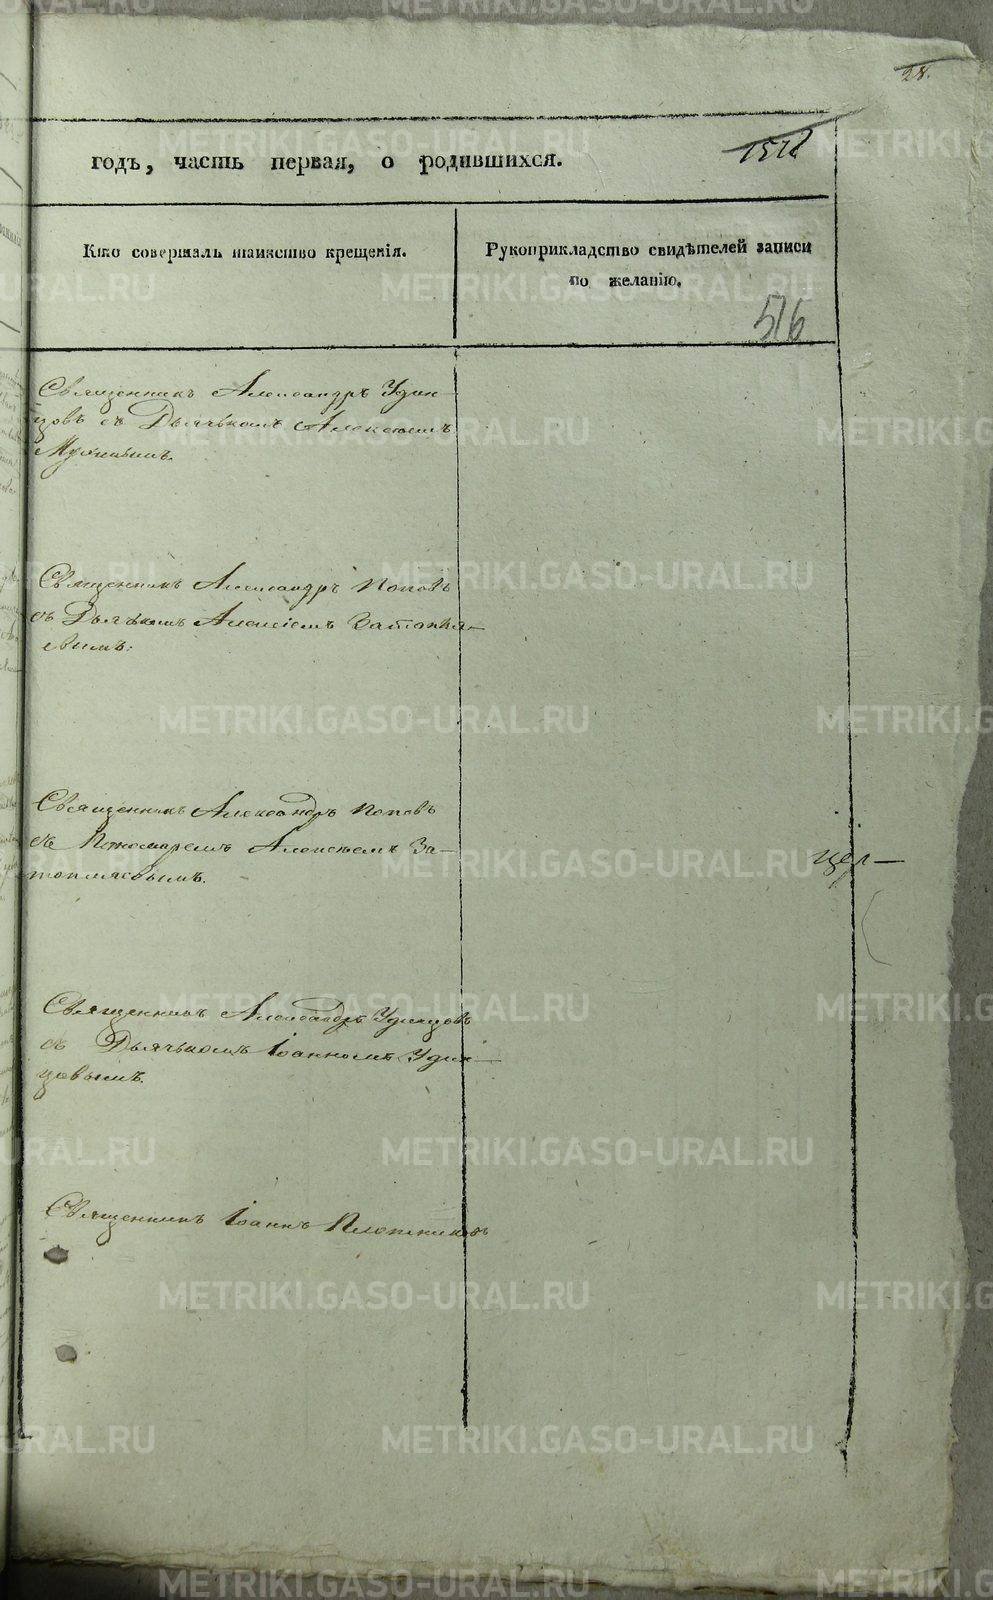 28.
годъ, часть первая, о родившихся.
Кто совершалъ таинство крещенія.
Рукоприкладство свидѣтелей записи
по желанію.
516
Священникъ Александръ Удин-
цовъ съ Дьячькомъ Алексѣемъ
Священникъ Александръ Поповъ
съ Дьячькомъ Алексіемъ Затопля-
евымъ.
Священникъ Александръ Поповъ
съ Пономаремъ Алексѣемъ За-
топляевымъ.
цер-
Священникъ Александръ Удинцовъ
съ Дьячькомъ Іоанномъ Удин-
цовымъ.
Священникъ Іоаннъ Плотниковъ
METRIKI.GASO-URAL.RU